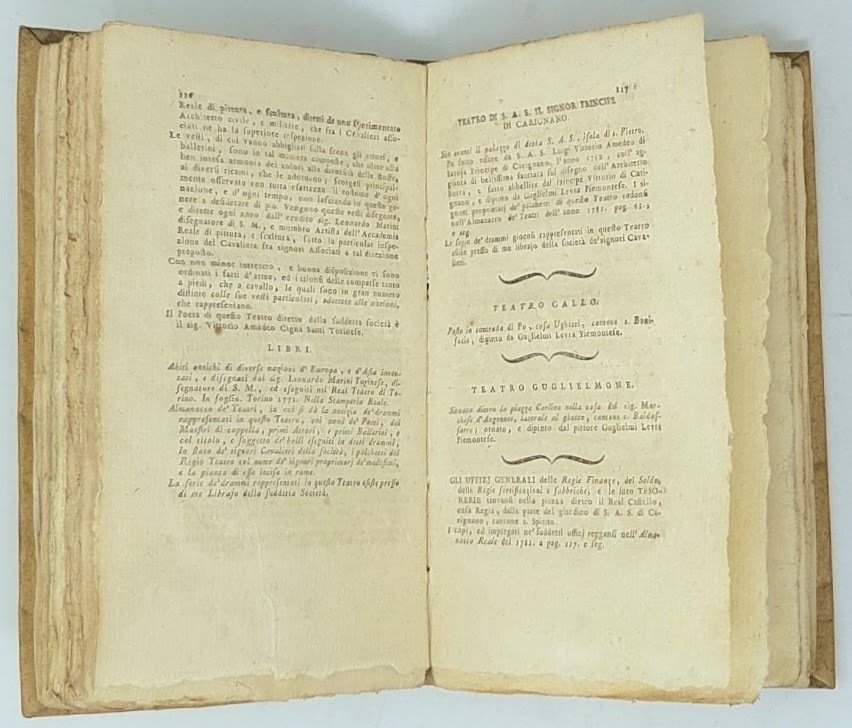 116
Reale di pittura, e scultura, diretti da uno sperimentato
Architetto civile, e militare, che fra i Cavalieri asso-
ciati ne ha la superiore ispezione.
Le vesti, di cui vanno abbigliati sulla scena gli attori, e
ballerini, sono in tal maniera composte, che oltre alla
ben intesa armonia dei colori alla diversità delle stoffe,
ai diversi ricami, che le adornano; scorgesi principal-
mente osservato con tutta esattezza il costume d'ogni
nazione, e d'ogni tempo, non lasciando in questo ge-
nere a desiderare di più. Vengono queste vesti disegnate,
e dirette ogni anno dall'erudito sig. Leonardo Marini
disegnatore di S. M., e membro Artista dell'Accademia
Reale di pittura, e scultura, sotto la particolar inspe-
zione del Cavaliere fra signori Associati a tal direzione
preposto.
Con non minor intreccio, e buona disposizione vi sono
ordinati i fatti d'arme, ed i trionfi delle comparse tanto
a piedi, che a cavallo, le quali sono in gran numero
distinte colle sue vesti particolari, adattate alle nazioni,
che rappresentano.
Il Poeta di questo Teatro diretto dalla suddetta società è
il sig. Vittorio Amedeo Cigna Santi Torinese.
LIBRI.
Abiti antichi di diverse nazioni d'Europa, e d'Asia inven-
tati, e disegnati dal sig. Leonardo Marini Torinese, di-
segnatore di S. M., ed eseguiti nel Real Teatro di To-
rino. In foglio. Torino 1771. Nella Stamperia Reale.
Almanacco de' Teatri, in cui si dà la notizia de' drammi
rappresentati in questo Teatro, col nome de' Poeti, dei
Maestri di cappella, primi Attori, e primi Ballerini, e
col titolo, e soggetto de' balli eseguiti in detti drammi,
lo stato de' signori Cavalieri della società, i palchetti del
Regio Teatro col nome de' signori proprietarj de' medesimi,
e la pianta di esso incisa in rame.
La serie de' drammi rappresentati in questo Teatro esiste presso
di me Librajo della suddetta Società.
117
TEATRO DI S. A. S. IL SIGNOR PRINCIPE
DI CARIGNANO.
Sta avanti il palazzo di detta S. A. S., isola di s. Pietro.
Fu fatto rifare da S. A. S. Luigi Vittorio Amedeo di
Savoja Principe di Carignano, l'anno 1752, coll' ag-
giunta di bellissima facciata sul disegno dell'Architetto
Borra, e fatto abbellire dal Principe Vittorio di Cari-
gnano, e dipinto da Guglielmi Levra Piemontese. I si-
gnori proprietarj de' palchetti di questo Teatro vedonsi
nell'Almanacco de' Teatri dell'anno 1781. pag. 63.,
e seg.
La serie de' drammi giocosi rappresentati in questo Teatro
esiste presso di me librajo della società de' signori Cava-
lieri.
TEATRO GALLO.
Posto in contrada di Po, casa Ughetti, cantone s. Boni-
facio, dipinto da Guglielmi Levra Piemontese.
TEATRO GUGLIELMONE.
Situato dietro la piazza Carlina nella casa del sig. Mar-
chese d'Angennes, laterale al ghetto, cantone s. Baldas-
sarre; ornato, e dipinto dal pittore Guglielmi Levra
Piemontese.
GLI UFFIZJ GENERALI delle Regie Finanze, del Soldo,
delle Regie fortificazioni e fabbriche, e le loro TESO-
RERIE trovansi nella piazza dietro il Real Castello,
casa Regia, dalla parte del giardino di S. A. S. di Ca-
rignano, cantone s. Spirito.
I capi, ed impiegati ne' suddetti uffizj veggansi nell'Alma-
nacco Reale del 1781. a pag. 117. e seg.